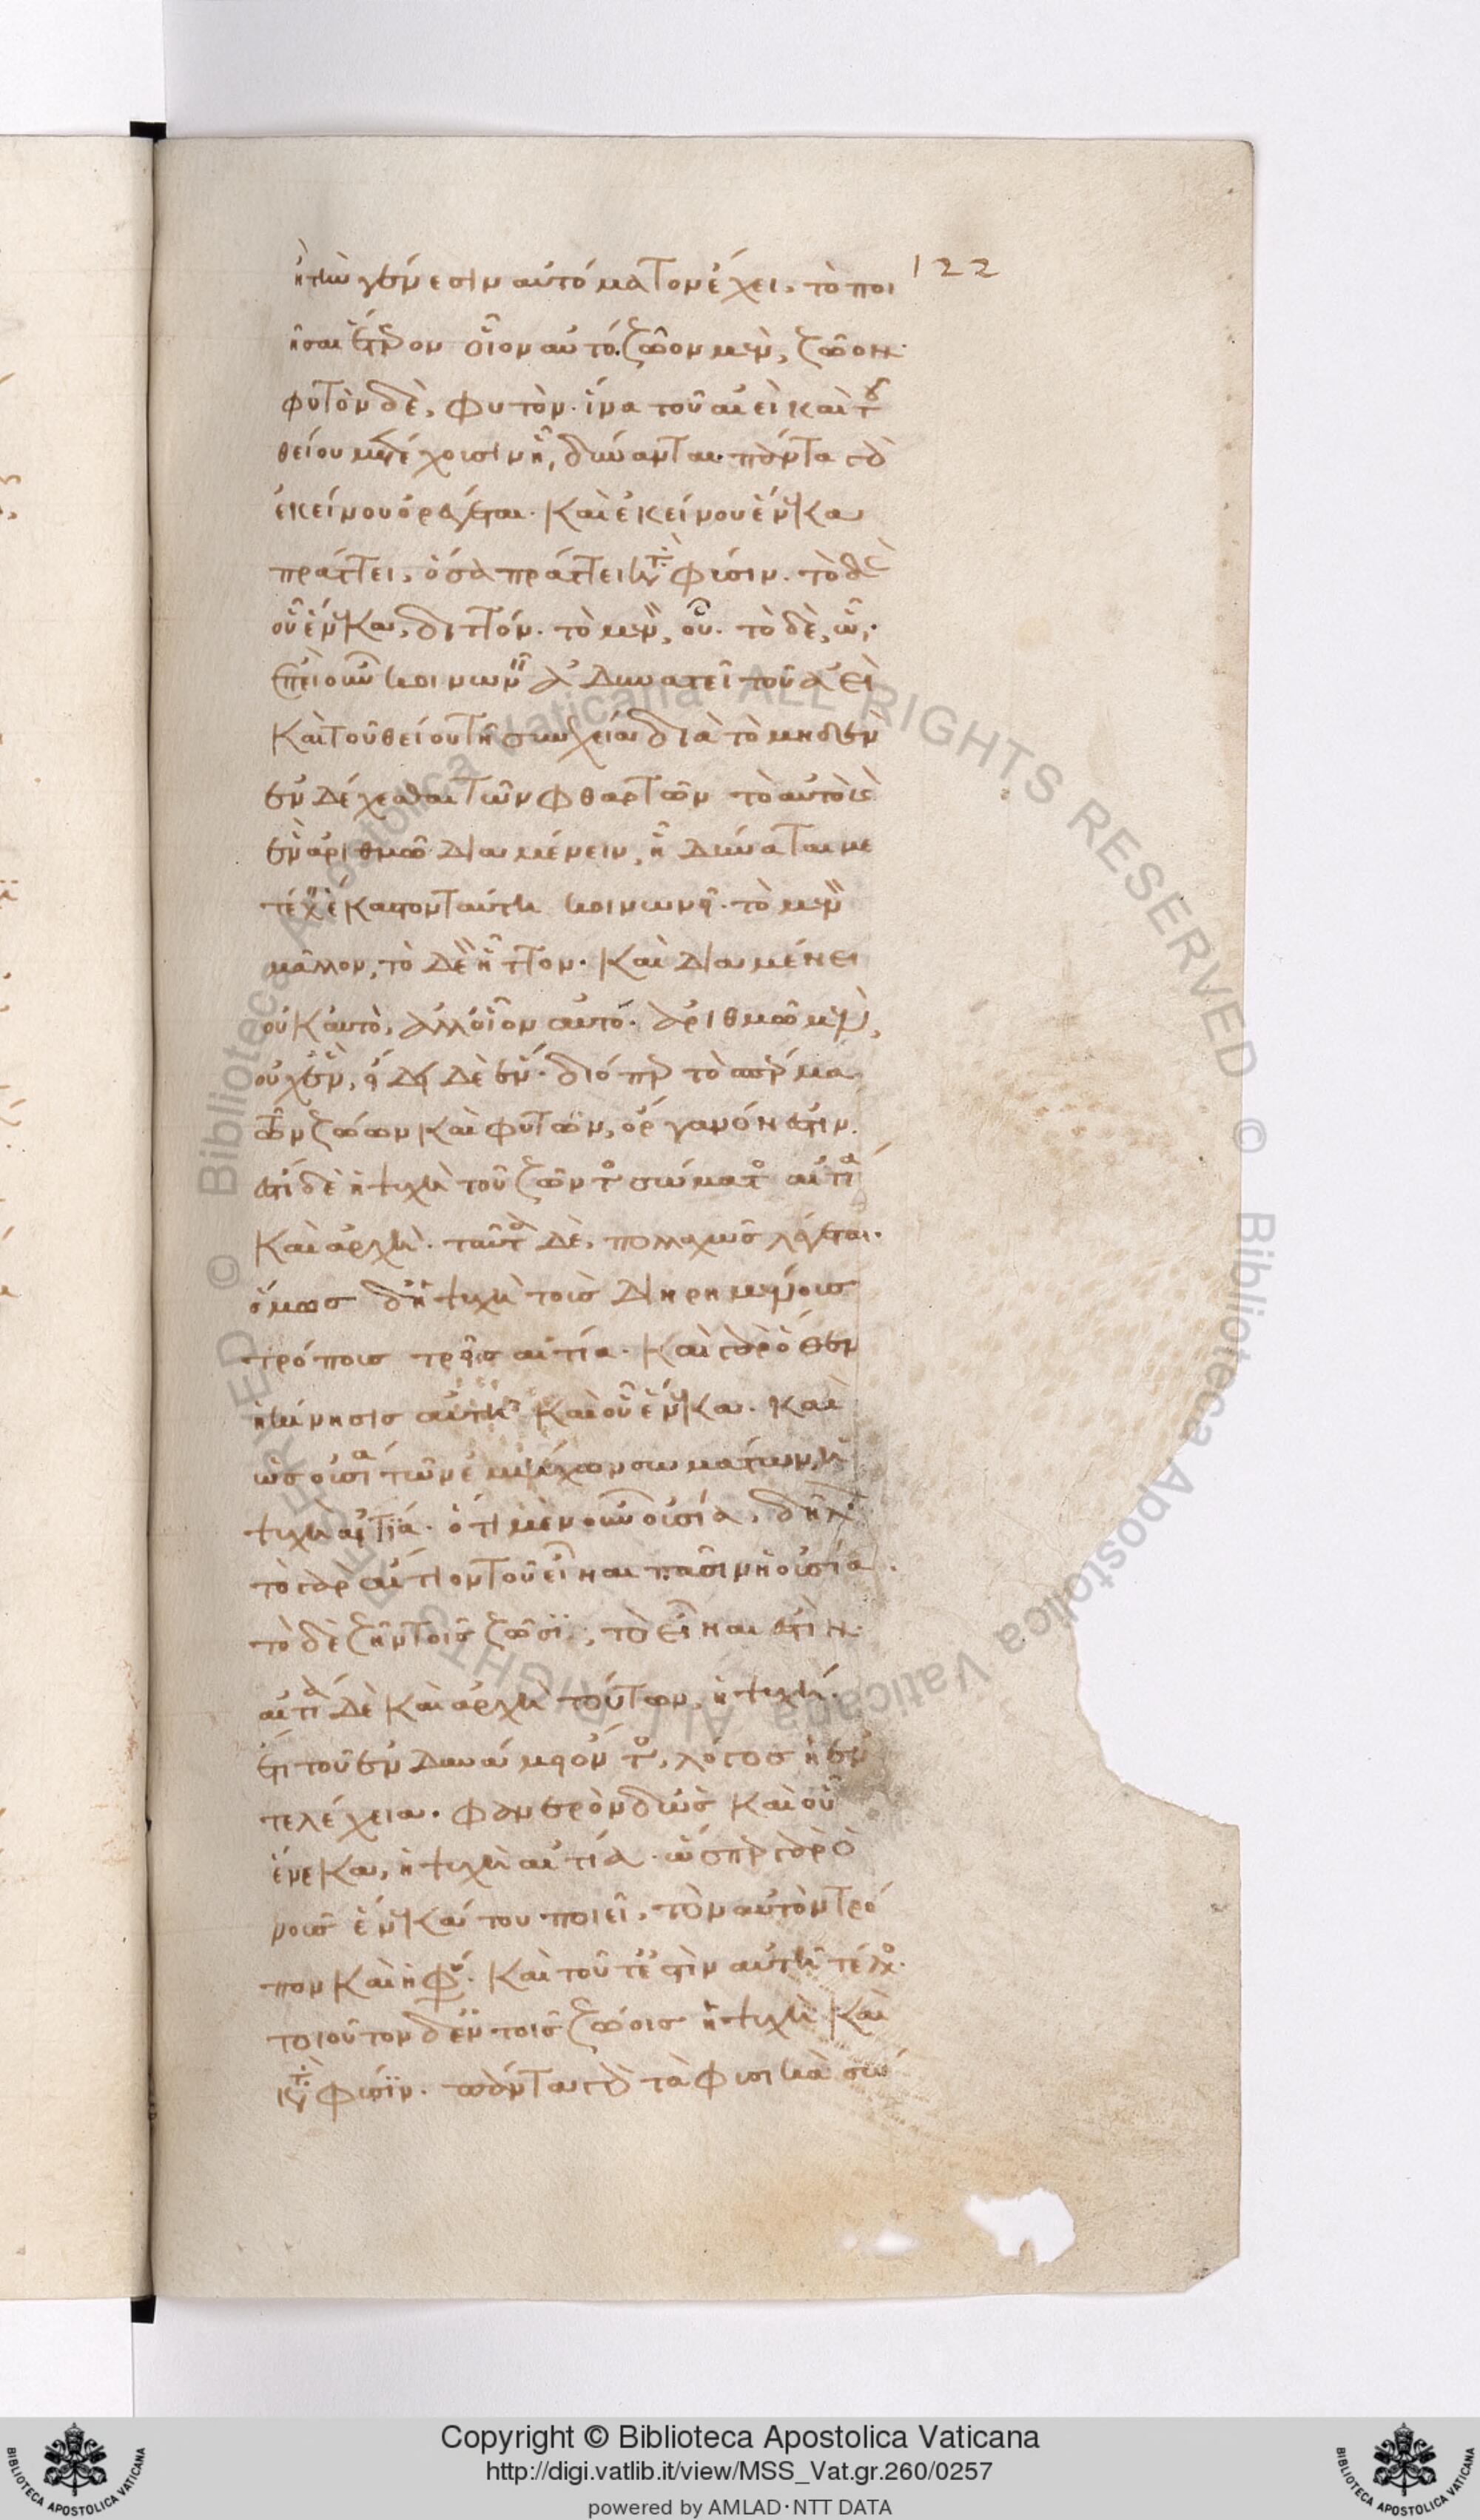 ἢ τὴν γένεσιν αὐτόματον ἔχει, τὸ ποι 122
ῆσαι ἕτερον οἷον αὐτό. ζῷον μὲν, ζῷον·
φυτὸν δὲ, φυτὸν· ἵνα τοῦ ἀεὶ καὶ τοῦ
θείου μετέχωσιν ᾗ δύνανται· πάντα γὰρ
ἐκείνου ὀρέγεται· καὶ ἐκείνου ἕνεκα
πράττει, ὅσα πράττει κατὰ φύσιν. τὸ δὲ
οὗ ἕνεκα, διττόν· τὸ μὲν, οὗ· τὸ δὲ, ᾧ·
ἐπεὶ οὖν κοινωνεῖν ἀδυνατεῖ τοῦ ἀεὶ
καὶ τοῦ θείου τῇ συνεχείᾳ διὰ τὸ μηδὲν
ἐνδέχεσθαι τῶν φθαρτῶν τὸ αὐτὸ καὶ
ἓν ἀριθμῷ διαμένειν, ᾗ δύναται με
τέχειν ἕκαστον ταύτῃ κοινωνεῖ· τὸ μὲν
μᾶλλον, τὸ δὲ ἧττον· καὶ διαμένει
οὐκ αὐτὸ, ἀλλ' οἷον αὐτό· ἀριθμῷ μὲν,
οὐχ ἕν, εἴδει δὲ ἕν· διόπερ τὸ σπέρμα
τῶν ζῴων καὶ φυτῶν, ὄργανόν ἐστιν.
ἔστι δὲ ἡ ψυχὴ τοῦ ζῶντος σώματος αἰτία
καὶ ἀρχὴ· ταῦτα δὲ, πολλαχῶς λέγεται·
ὁμοίως δ' ἡ ψυχὴ τοῖς διῃρημένοις
τρόποις τρεῖς αἰτία· καὶ γὰρ ὅθεν
ἡ κίνησις αὐτή· καὶ οὗ ἕνεκα· καὶ
ὡς οὐσία τῶν ἐμψύχων σωμάτων, ἡ
ψυχὴ αἰτία· ὅτι μὲν οὖν οὐσία, δῆλον
τὸ γὰρ αἴτιον τοῦ εἶναι πᾶσιν ἡ οὐσία·
τὸ δὲ ζῆν τοῖς ζῶσι, τὸ εἶναι ἐστίν·
αἰτία δὲ καὶ ἀρχὴ τούτων, ἡ ψυχή·
ἔτι τοῦ ἐν δυνάμει ὄντος, λόγος ἡ ἐν
τελέχεια· φανερὸν δ' ὡς καὶ οὗ
ἕνεκα, ἡ ψυχὴ αἰτία· ὥσπερ γὰρ ὁ
νοῦς ἕνεκά του ποιεῖ, τὸν αὐτὸν τρό
πον καὶ ἡ φύσις· καὶ τοῦτ' ἔστιν αὐτῇ τέλος·
τοιοῦτον δ' ἐν τοῖς ζῴοις ἡ ψυχὴ καὶ
κατὰ φύσιν· πάντα γὰρ τὰ φυσικὰ σώ
Copyright © Biblioteca Apostolica Vaticana
http://digi.vatlib.it/view/MSS_Vat.gr.260/0257
powered by AMLAD·NTT DATA